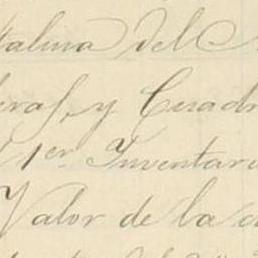 talina del
eras, y Cuadr
1er Inventari
Valor de la c